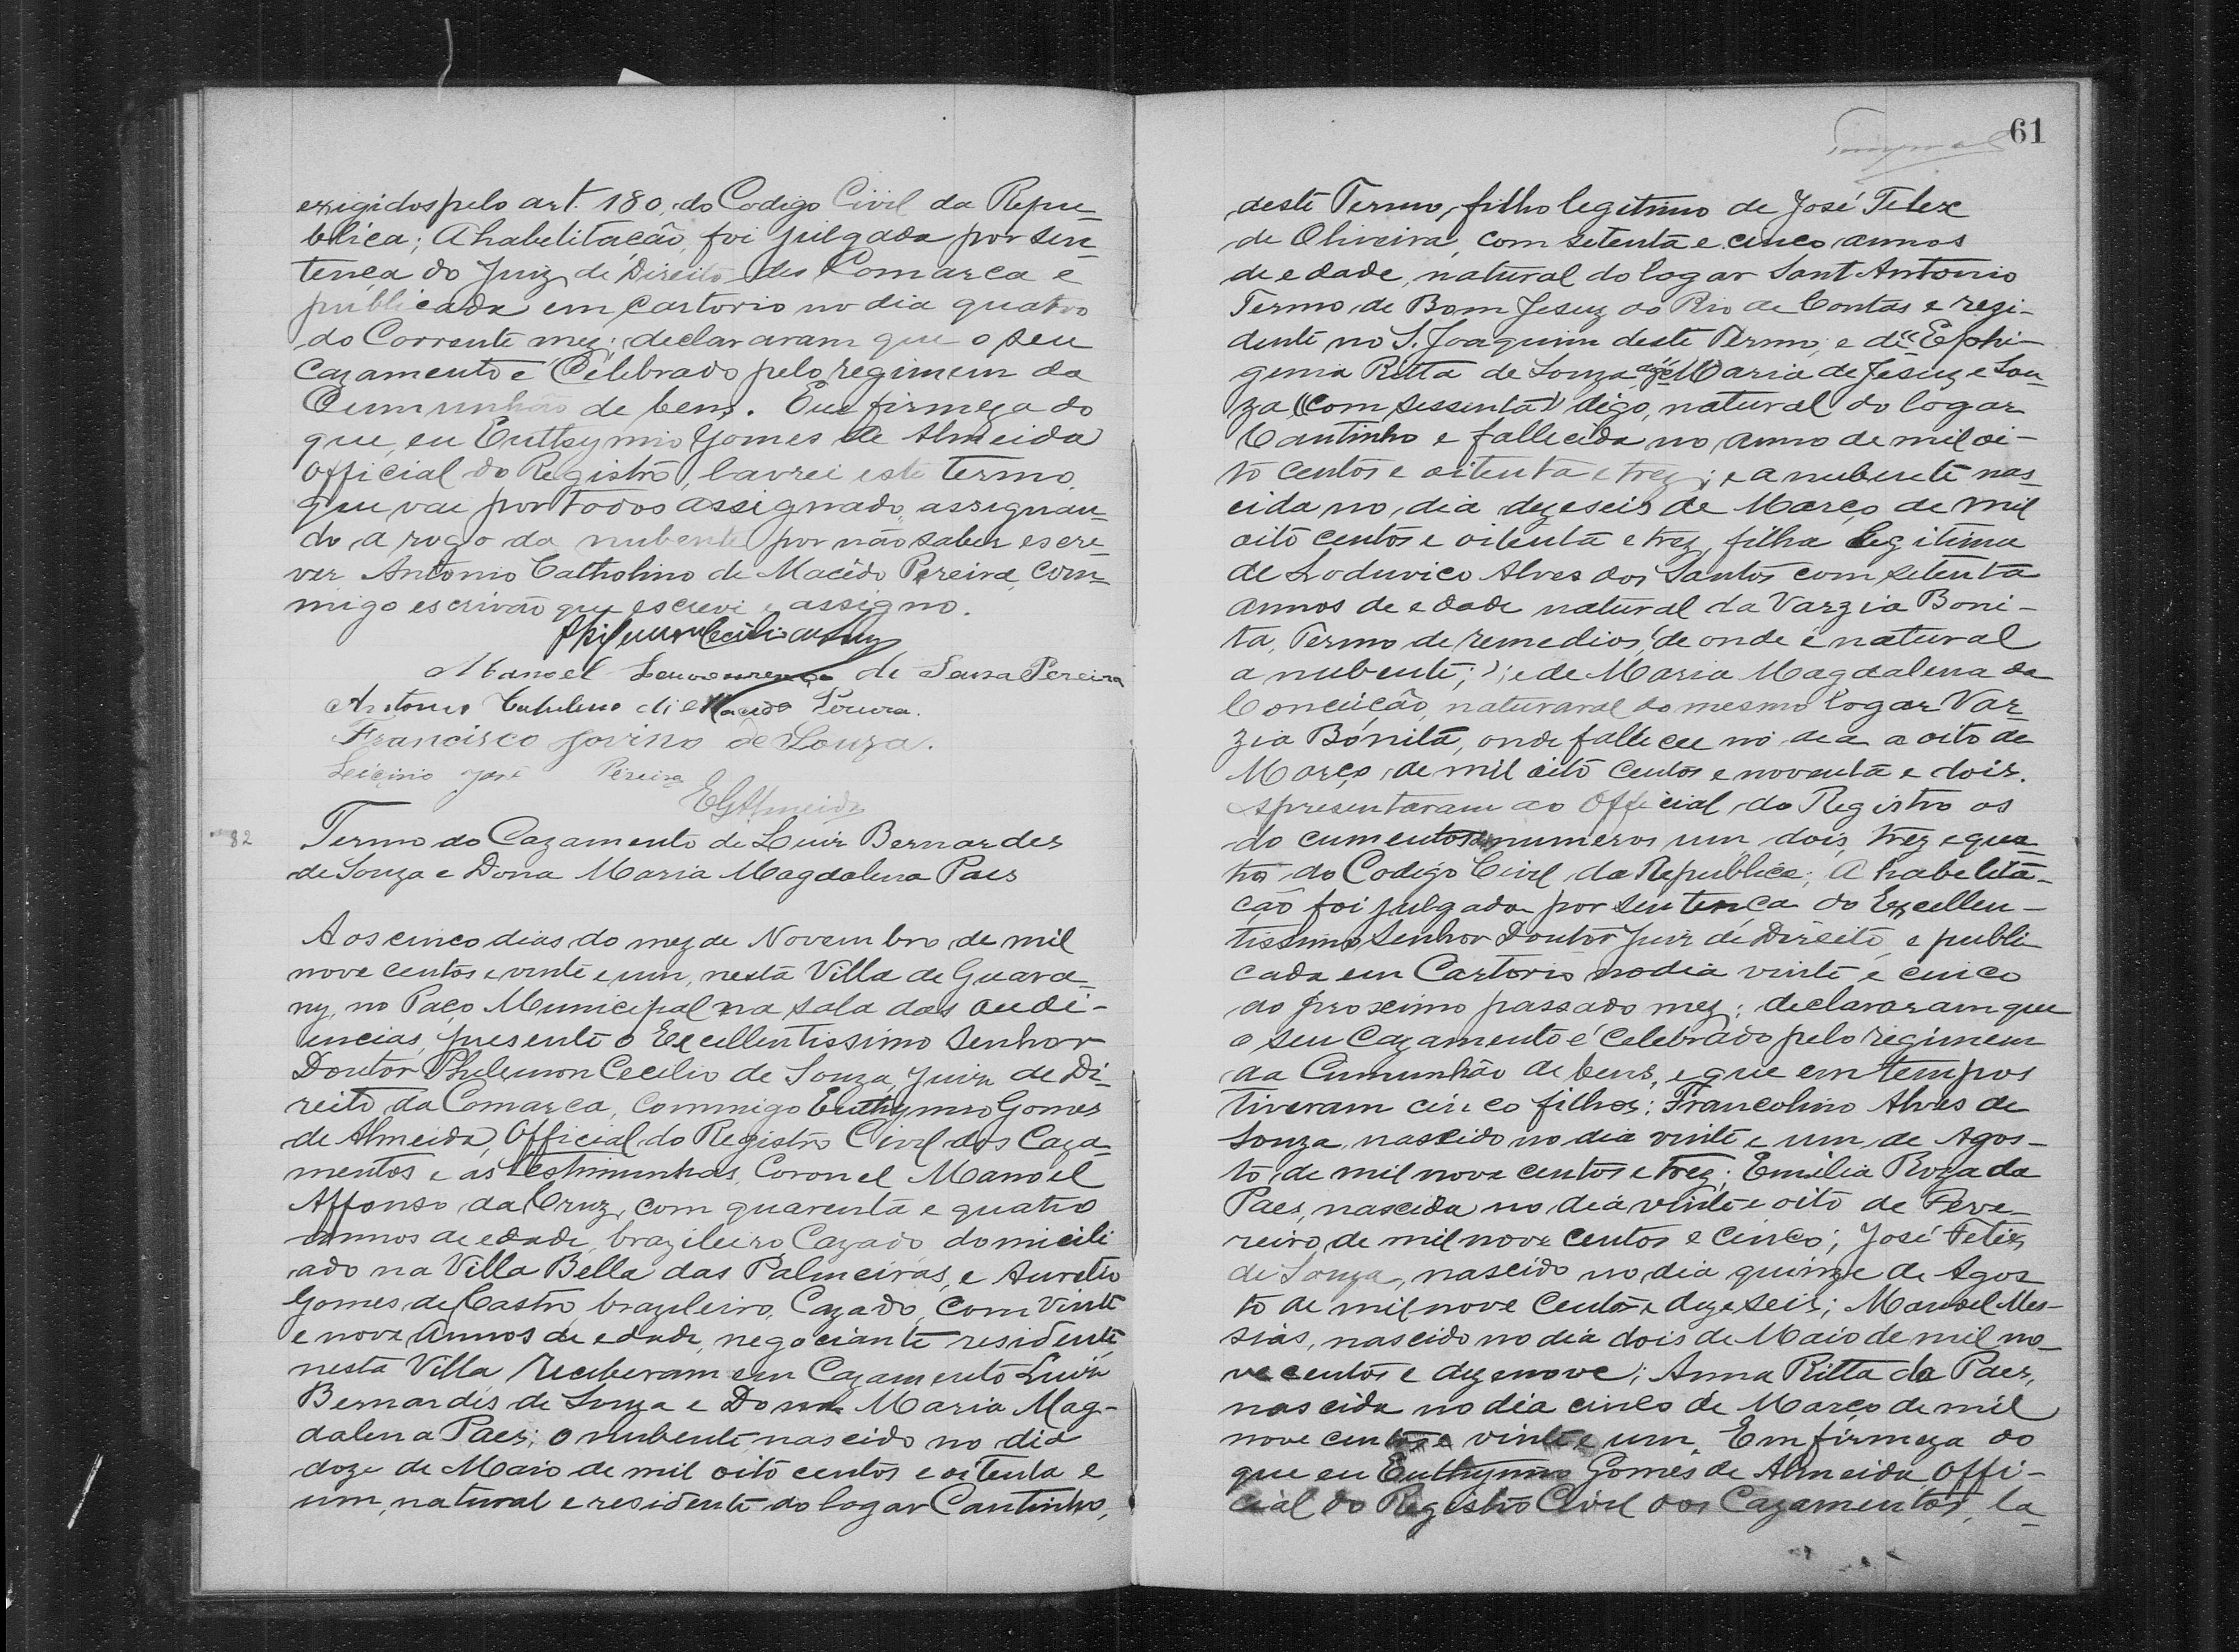 exigidos pelo art. 180, do Codigo Civil da Repu_
blica; A habelitação foi julgada por sen_
tença do Juiz de Direito da Comarca e
publicada em cartorio no dia quatro
do Corrente mez; declararam que o seu
Cazamento é Célebrado pelo regimem da
Cumunhão de bens. Em firmeza do
que, eu Euthymio Gomes de Almeida
Official do Registro, lavrei este termo
que vae por todos assignado, assignan_
do a rogo da nubente por não saber escre_
ver Antonio Catholino de Macêdo Pereira, com_
migo escrivão que escrevi e assigno.
Manoel de Souza Pereira
Antonio Catulino de Macedo Pereira.
Francisco Jovino de Souza.
Licinio José Pereira
EGAlmeida
82 Termo do Cazamento de Luiz Bernardes
de Souza e Dona Maria Magdalena Paes
Aos cinco dias do mez de Novembro de mil
nove centos e vinte e um, nesta Villa de Guara_
ny, no Paço Municipal na sala das audi-
encias, presente o Excellentissimo Senhor
Doutor Philemon Cecilio de Souza, Juiz de Di_
reito da Comarca, commigo Euthymio Gomes
de Almeida, Official do Registro Civil dos Caza_
mentos e as testimunhas, Coronel Manoel
Affonso da Cruz, com quarenta e quatro
annos de edade, brazileiro, Cazado, domicili
ado na Villa Bella das Palmeiras, e Aurelio
Gomes de Castro, brazileiro, Cazado, com vinte
e nove annos de edade, negociante residente
nesta Villa receberam em Cazamento Luiz
Bernardes de Souza e Dona Maria Mag-
dalena Paes; o nubente nascido no dia
doze de Maio de mil oito centos e oitenta e
um, natural e residente do logar Cantinho,
61
deste Termo, filho legitimo de José Felex
de Oliveira, com setenta e cinco annos
de edade, natural do logar Sant Antonio
Termo de Bom Jesuz do Rio de Contas e rezi-
dente no S. Joaquim deste Termo; e de "Ephi-
genia Ritta de Souza" digo Maria de Jesuz e Sou_
za ((com sessenta)) digo, natural do logar
Cantinho e fallecida no anno de mil oi-
to centos e oitenta e trez; e a nubente nas_
cida no dia dezeseis de Março de mil
oito centos e oitenta e trez, filha legitima
de Loduvico Alves dos Santos com setenta
annos de edade natural da Varzia Boni-
ta, Termo de remedios, de onde é natural
a nubente; ); e de Maria Magdalena da
Conceição, naturaral do mesmo logar Var_
zia Bonita, onde falleceu no dia a oito de
Março de mil oito centos e noventa e dois.
Apresentaram ao Official do Registro os
documentos numeros um, dois, trez e qua_
tro do Codigo Civil da Republica; A habelita_
ção foi julgada por sentença do Excellen-
tissimo Senhor Doutor Juiz de Direito, e publi_
cada em Cartorio no dia vinte e cinco
do proximo passado mez; declararam que
o seu Cazamento é Celebrado pelo regimem
da Cumunhão de bens, e que em tempos
tiveram cinco filhos: Francolino Alves de
Souza, nascido no dia vinte e um de Agos-
to de mil nove centos e trez; Emilia Roza da
Paes, nascida no dia vinte e oito de Feve_
reiro, de mil nove centos e cinco; José Felix
de Souza, nascido no dia quinze de Agos
to de mil nove centos e dezeseis; Manoel Mes-
sias, nascido no dia dois de Maio de mil no_
ve centos e dezenove; Anna Ritta da Paes,
nascida no dia cinco de Março de mil
nove centos e vinte e um. Em firmeza do
que eu Euthymio Gomes de Almeida, Offi-
cial do Registro Civil dos Cazamentos, la_